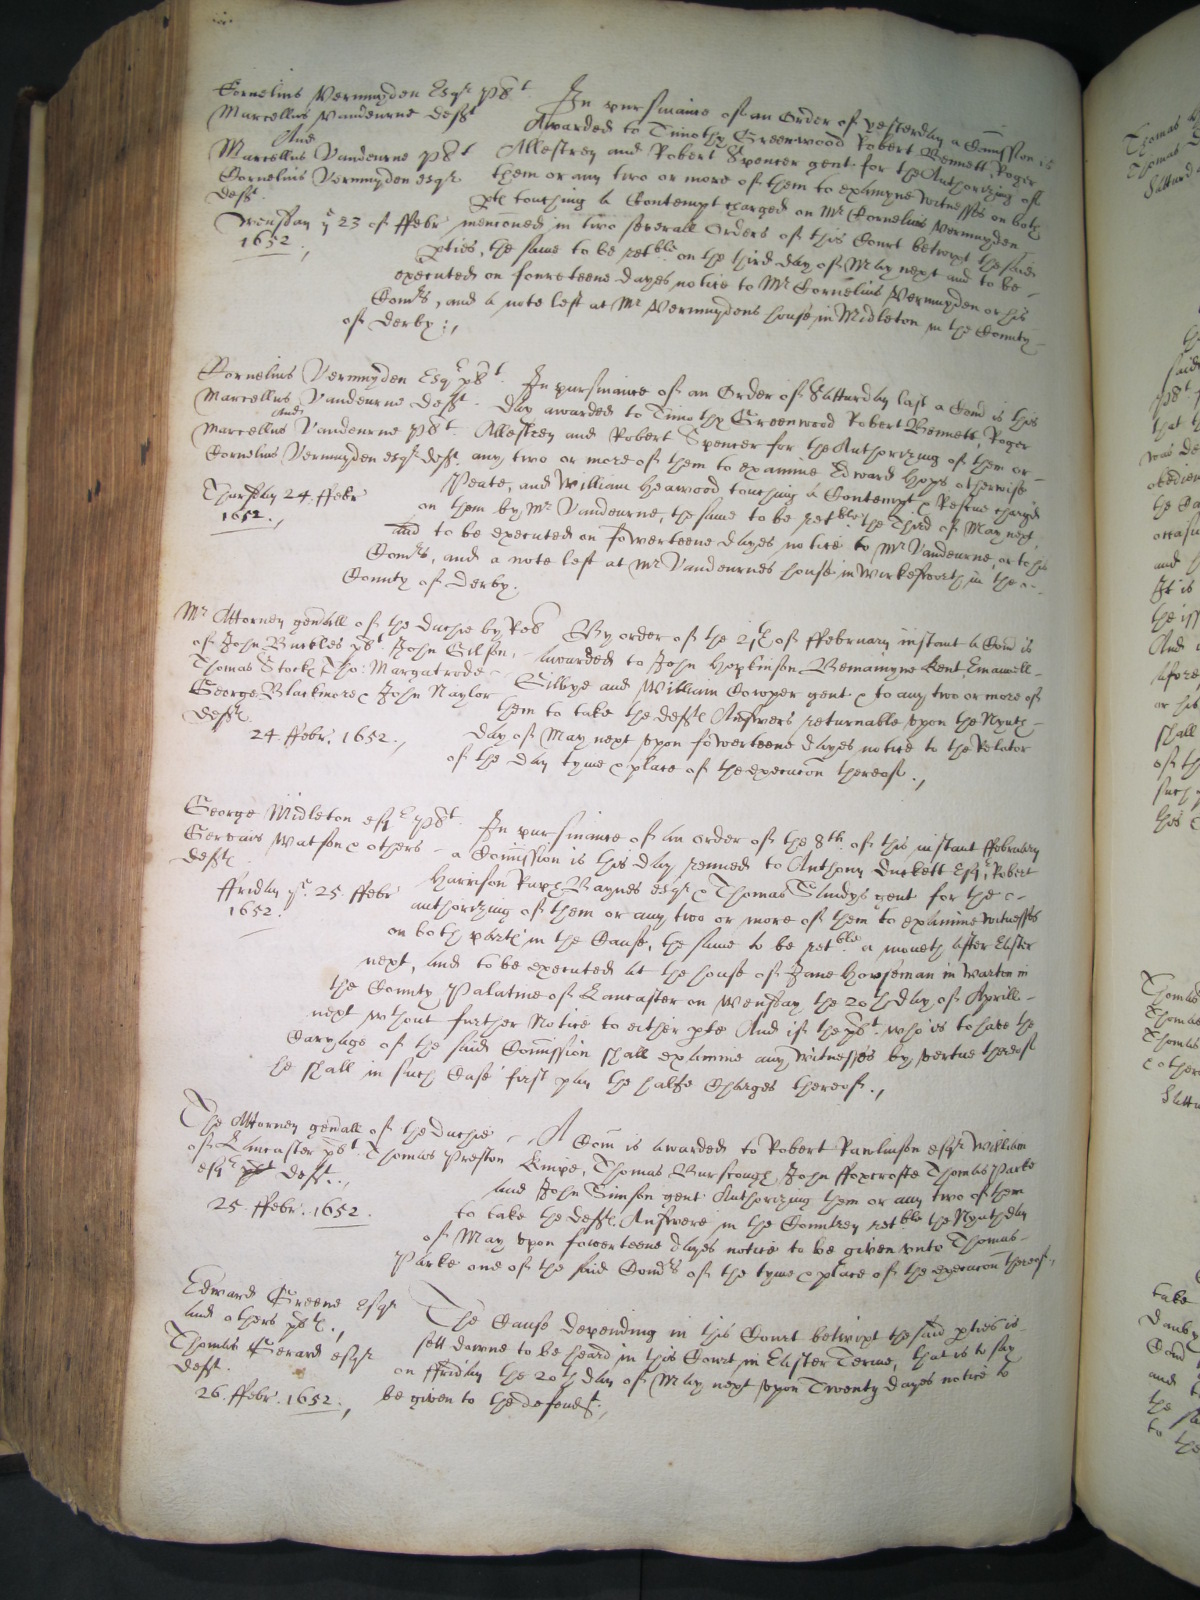 Cornelius Vermuyden Esqr plt
Marcellus Vandeurne defft
And
Marcellus Vandeurne plt
Cornelius Vermuyden esqr
defft
Wensday ye 23 of ffebr
1652
In pursuance of an Order of yesterday a Comission is
Awarded to Timothy Greenwood Robert Bennett Roger
Allestrey and Robert Spencer gent for the Authorizing of
them or any two or more of them to examyne witnesses on both
ptes touching a Contempt charged on Mr Cornelius Vermuyden
mencioned in two severall Orders of this Court betwixt the said
pties, the same to be retble on the third day of May next and to be
executed on foureteene dayes notice to Mr Cornelius Vermuyden or his
Comrs, and a note left at Mr Vermuydens house in Midleton in the County
of Derby
Cornelius Vermuyden Esqr plt
Marcellus Vandeurne defft
And
Marcellus Vandeurne plt
Cornelius Vermuyden esqr defft
Thursday 24 ffebr
1652
In pursuance of an Order of Satturday last a Comn is this
day awarded to Timothy Greenwood Robert Bennett, Roger
Allestrey and Robert Spencer for the Authorizing of them or
any two or more of them to examine Edward Hops otherwise
Peate, and William Heawood touching a Contempt & Rescue charged
on them by Mr Vandeurne, the same to be retble the Third of May next
and to be executed on fowerteene dayes notice to Mr Vandeurne, or to his
Comrs, and a note left at Mr Vandeurnes house in Wirkesworth in the
County of Derby.
Mr Attorney gen'all of the Duchie by Rel
of John Buckles plt John Gilson,
Thomas Stock, Tho: Margatrode
George Blackmore & John Naylor
deffts
24 ffebr. 1652.
By order of the 21th of ffebruary instant a Comn is
awarded to John Hopkinson Beniamyne Kent, Emanuell
Gilbye and William Cowper gent & to any two or more of
them to take the deffts Answers returnable upon the Nynth
day of May next upon fowerteene dayes notice to the Relator
of the day tyme & place of the execucon thereof.
George Midleton esqr plt
Gervais Watson & others
deffts
ffriday ye 25 ffebr
1652.
In pursuance of an order of the 8th of this instant ffebruary
a Comission is this day renued to Anthony Duckett Esqr, Robert
Harrison Baynes esqr & Thomas Sandys gent for the
authorizing of them or any two or more of them to examine witnesses
on both parts in the Cause, the same to be retble a moneth after Easter
next, and to be executed at the house of Jane Horseman in Warton in
the County Palatine of Lancaster on Wensday the 20th day of Aprill
next without further Notice to either pte And if the plt who is to have the
Caryage of the said Comission shall examine any witnesses by vertue thereof
he shall in such Case first pay the halfe Charges thereof.
The Attorney gen'all of the Duchie
of Lancaster plt Thomas Preston
esqr defft
25 ffebr. 1652.
A Comn is awarded to Robert Rawlinson esqr William
Knipe, Thomas Burscough, John ffoxcrofte Thomas Parke
and John Simson gent Authorizing them or any two of them
to take the deffts Answere in the Countrey retble the Nynth day
of May upon fowerteene dayes notice to be given unto Thomas
Parke one of the said Comrs of the tyme & place of the execucon thereof,
Edward Greene esqr
and others plts
Thomas Gerard esqr
defft
26. ffebr. 1652.
The Cause depending in this Court betwixt the said pties is
sett downe to be heard in this Court in Easter Terme, that is to say
on ffriday the 20th day of May next upon Twenty dayes notice to
be given to the defendt.